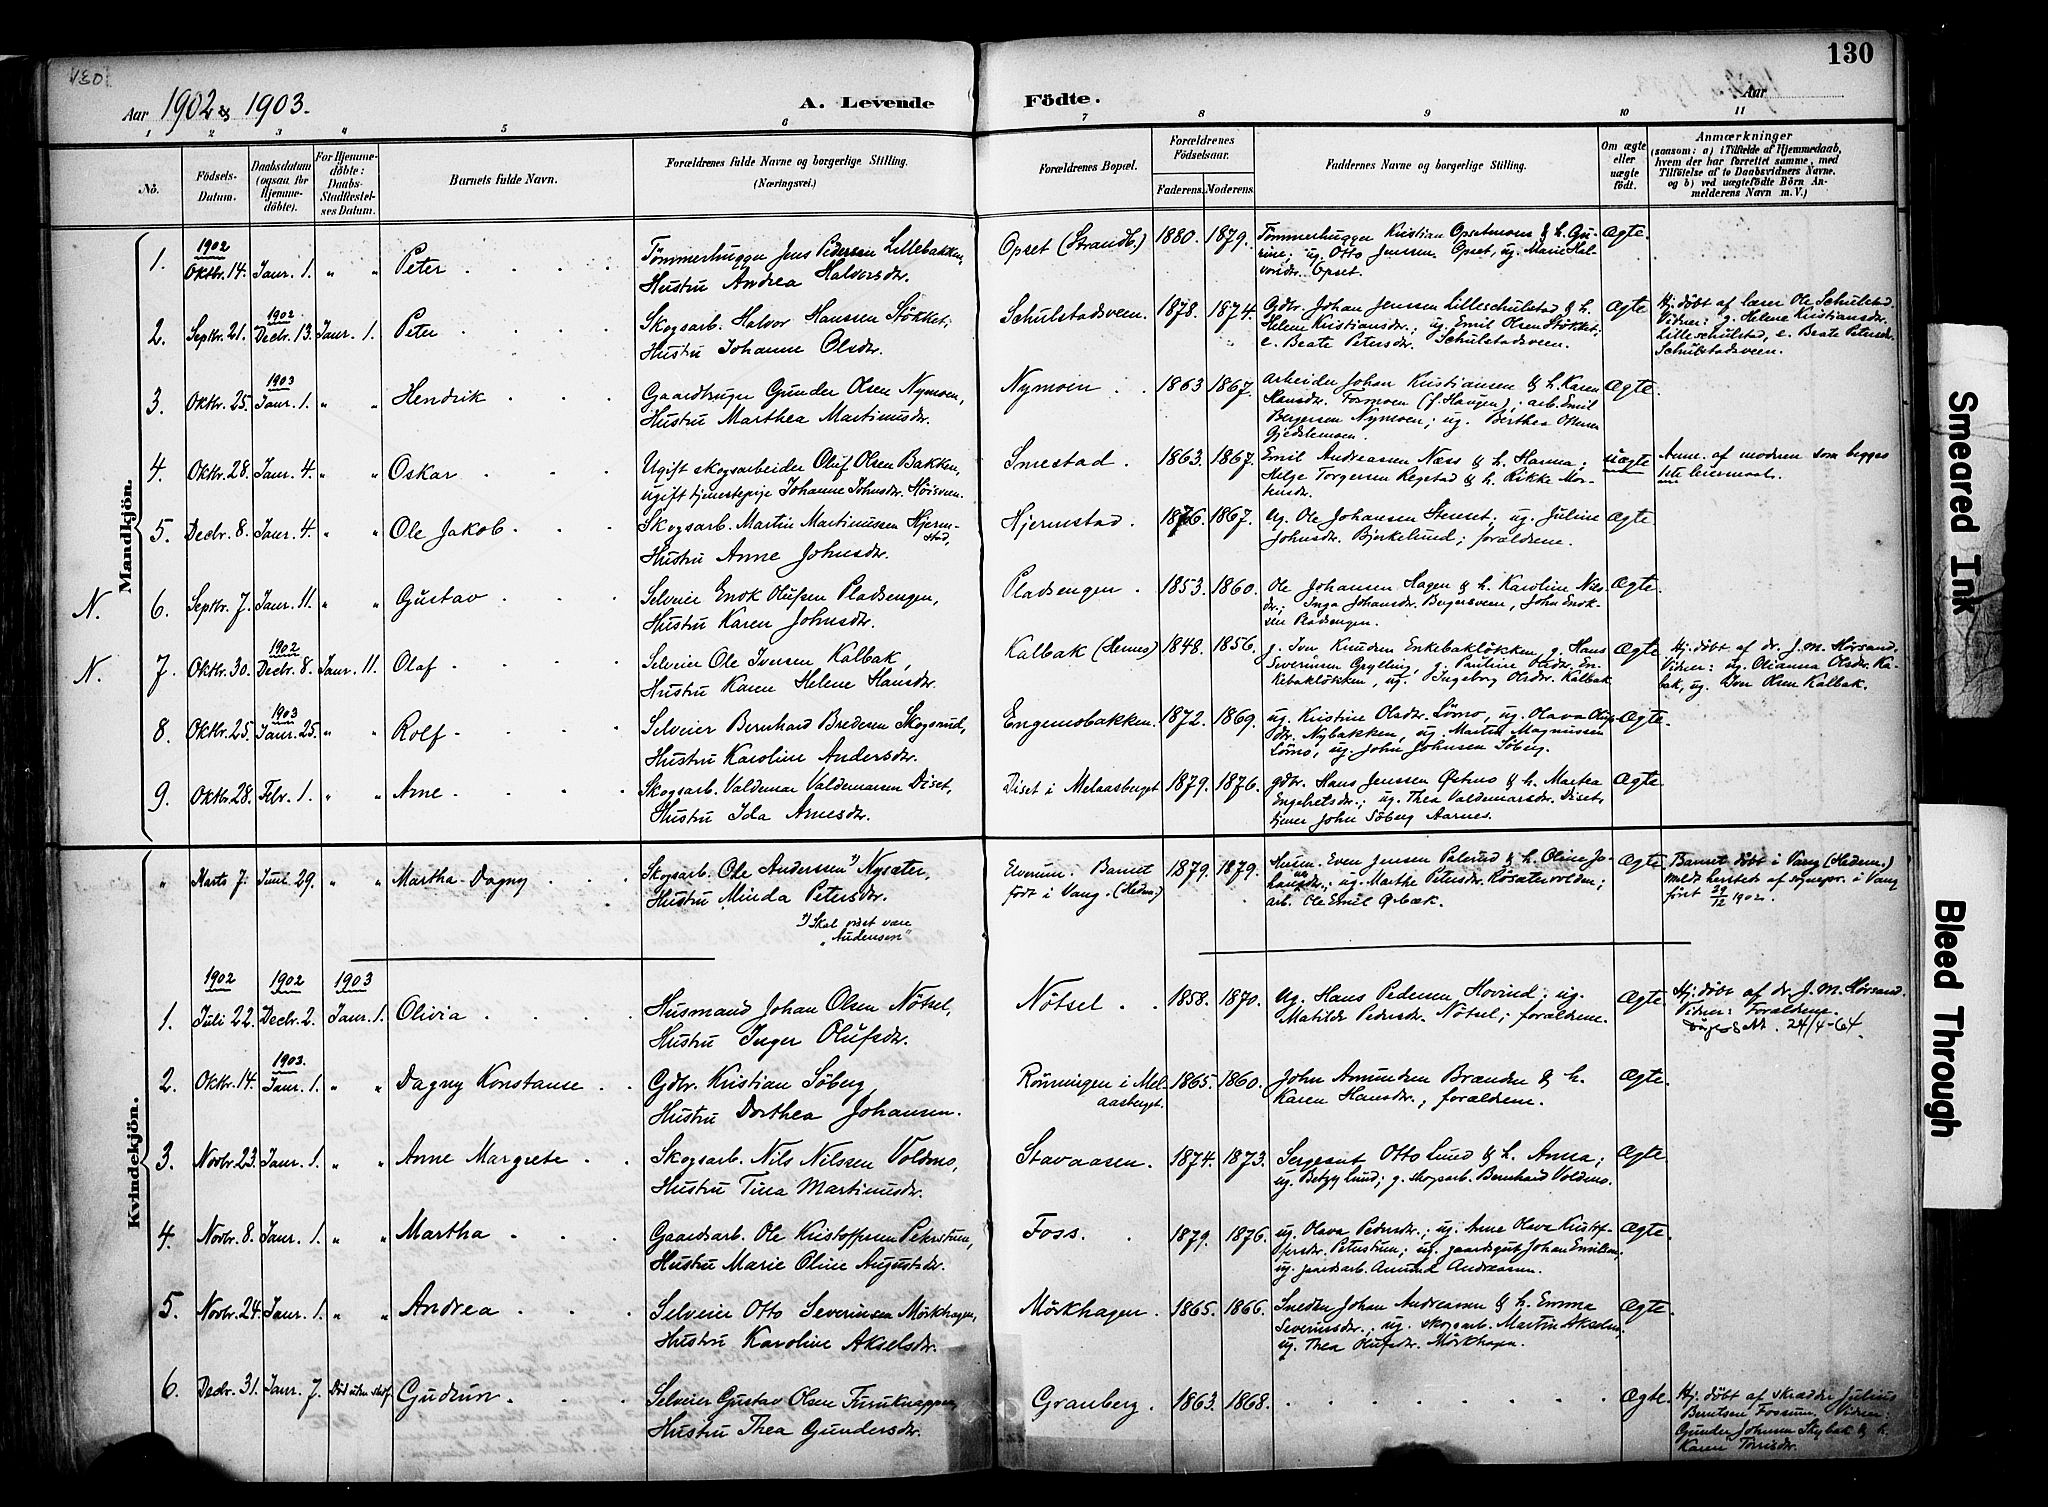 130
Aar 1902 & 1903.
A. Levende Födte.
Aar
1 2 3 4 5 6 7 8 9 10 11
No.
Födsels-Datum.
Daabsdatum (ogsaa for Hjemme-döbte).
For Hjemme-döbte: Daabs-Stadfæstel-ses Datum.
Barnets fulde Navn.
Forældrenes fulde Navne og borgerlige Stilling. (Næringsvei.)
Forældrenes Bopæl.
Forældrenes Födselsaar.
Faderens. Moderens.
Faddernes Navne og borgerlige Stilling.
Om ægte eller uægte födt.
Anmærkninger
(saasom: a) i Tilfælde af Hjemmedaab,
hvem der har forrettet samme, med
Tilföielse af to Daabsvidners Navne,
og b) ved uægtefödte Börn An-
melderens Navn m. V.)
Mandkjön.
1. 1902 Oktbr. 14. Janr. 1. " " Peter
Tømmerhugger Jens Pedersen Lillebakken,
Hustru Andrea Halvorsdr.
Opset (Strandb.) 1880. 1879.
Tømmerhugger Kristian Opsetmoen & h. Gu-
rine; ug. Otto Jenssen Opset, ug. Marie Hal-
vorsdr. Opset.
Ægte.
2. Septbr. 21. 1902 Decbr. 13. Janr. 1. Peter
Skogsarb. Halvor Hanssen Støkket,
Hustru Johanne Olsdr.
Schulstadsveen. 1878. 1874.
Gdbr. Johan Jenssen Lilleschulstad & h.
Helene Kristiansdr.; ug. Emil Olsen Støkket;
e. Beate Petersdr. Schulstadsveen.
Ægte
Hj. døbt af lærer Ole Schulstad.
Vidner: g. Helene Kristiansdr.
Lilleschulstad, e. Beate Petersdr.
Schulstadsveen.
3. Oktbr. 25. 1903 Janr. 1. " " Hendrik
Gaardbruger Gunder Olsen Nymoen,
Hustru Marthea Martinusdr.
Nymoen 1863 1867.
Arbeider Johan Kristiansen & h. Karen
Hansdr. Formoen (f. Haugen), arb. Emil
Bergersen Nymoen; ug. Berthea Olsen
Gjedtlemoen.
Ægte.
4. Oktbr. 28. Janr. 4. " " Oskar
Ugift skogsarbeider Oluf Olsen Bakken,
ugift tjenestepige Johanne Johnsdr. Hørsveen.
Smestad. 1863. 1867.
Emil Andreassen Næss & h. Hanna;
Helge Torgersen Regstad & h. Rikke Mor-
tensdr.
uægte
Anm. af modren som begges
1ste leiermaal.
5. Decbr. 8. Janr. 4. " " Ole Jakob
Skogsarb. Martin Martinussen Hjerm-
stad,
Hustru Anne Johnsdr.
Hjermstad. 1876. 1867.
Ug. Ole Johansen Stenset; ug. Juline
Johnsdr. Bjerkelund; forældrene.
Ægte
N. 6. Septbr. 7. Janr. 11. " " Gustav
Selveier Enok Olufsen Pladsengen,
Hustru Karen Johnsdr.
Pladsengen. 1853. 1860.
Ole Johansen Hagen & h. Karoline Nils-
dr.; Inga Johansdr. Bergersveen, John Enok-
sen Pladsengen.
Ægte.
N. 7. Oktbr. 30. 1902 Decbr. 8. Janr. 11. Olaf
Selveier Ole Iversen Kalbak,
Hustru Karen Helene Hansdr.
Kalbak (Hernes) 1848. 1856.
g. Iver Knudsen Enkebakløkken, g. Hans
Severinsen Grylling, g. Pauline Olsdr. En-
kebakløkken, ug. Ingeborg Olsdr. Kalbak
Ægte.
Hj. døbt af dr. J. M. Hørsand.
Vidner: ug. Olianna Olsdr. Kal-
bak, ug. Iver Olsen Kalbak.
8. Oktbr. 25. 1903 Janr. 25. " " Rolf
Selveier Bernhard Bredesen Skogsrud,
Hustru Karoline Andersdr.
Engemobakken. 1872. 1869.
ug. Kristine Olsdr. Lømo, ug. Olava Olufs-
dr. Nybakken, ug. Martin Magnussen
Lømo, ug. John Johnsen Søberg.
Ægte.
9. Oktbr. 28. Febr. 1. " " Arne
Skogsarb. Valdemar Valdemarsen Diset,
Hustru Ida Arnesdr.
Diset i Melaasberget 1879. 1876.
gdbr. Hans Jenssen Østmo & h. Martea
Engebretsdr.; ug. Thea Valdemarsdr. Diset,
tjener John Søberg Aarnes.
Ægte.
Kvindekjön.
" Marts 7. Juni 29. " " Martha Dagny
Skogsarb. Ole Anderssen 1) Nysæter,
Hustru Minda Petersdr.
1) Skal vist være
"Audensen"
Elverum. Barnet
født i Vang. (Hedm.) 1879. 1879.
Husm. Even Jensen Palerud & h. Oline Jo-
hansdr.; ug. Marthe Petersdr. Røsætervolden;
arb. Ole Emil Qvæk.
Ægte.
Barnet døbt i Vang (Hedem.)
meldt herstede af sognepr. i Vang
først 29/12 1902.
1. 1902 Juli 22. 1902 Decbr. 2. 1903 Janr. 1. Olivia
Husmand Johan Olsen Nötsel,
Hustru Inger Olufsdr.
Nötsel 1858. 1870.
Ug. Hans Pedersen Hovind; ug.
Matilde Pedersdr. Nötsel; forældrene.
Ægte.
Hj. døbt af dr. J. M. Hørsand.
Vidner: Forældrene.
24/4-64
2. Oktbr. 14. 1903. Janr. 1. " " Dagny Konstanse
Gdbr. Kristian Söberg,
Hustru Dorthea Johansen.
Rønningen i Mel-
aasberget. 1865. 1860.
John Amundsen Brænden & h.
Karen Hansdr.; forældrene.
Ægte.
3. Novbr. 23. Janr. 1. " " Anne Margrete
Skogsarb. Nils Nilssen Voldmo,
Hustru Tina Martinusdr.
Stavaasen. 1874. 1873.
Sergeant Otto Lund & h. Anna;
ug. Betzy Lund; g. skogsarb. Bernhard Voldmo.
Ægte.
4. Novbr. 8. Janr. 1. " " Martha
Gaardsarb. Ole Kristoffersen Peterstuen,
Hustru Marie Oline Augustsdr.
Foss. 1879. 1876.
ug. Olava Pedersdr.; ug. Anne Olava Kristof-
fersdr. Peterstuen; ug. gaardsgut Johan Emilsen;
ug. gaardsarb. Amund Andreassen.
Ægte.
5. Novbr. 24. Janr. 1. " " Andrea
Selveier Otto Severinsen Mörkhagen,
Hustru Karoline Akselsdr.
Mörkhagen. 1865. 1866.
Snedker Johan Andreassen & h. Emma
Severinsdr.; ug. skogsarb. Martin Akselsen;
ug. Thea Olufsdr. Mörkhagen.
Ægte.
6. Decbr. 31. Janr. 7. Död uden stadf. Gudrun
Selveier Gustav Olsen Furuknappen,
Hustru Thea Gundersdr.
Granberg. 1863. 1868.
Ægte.
Hj. døbt af skrædder Julius
Berntsen Fossum. Vidner:
Gunder Johnsen Skybak & h.
Karen Torrisdr.
Smeared Ink
Bleed Through